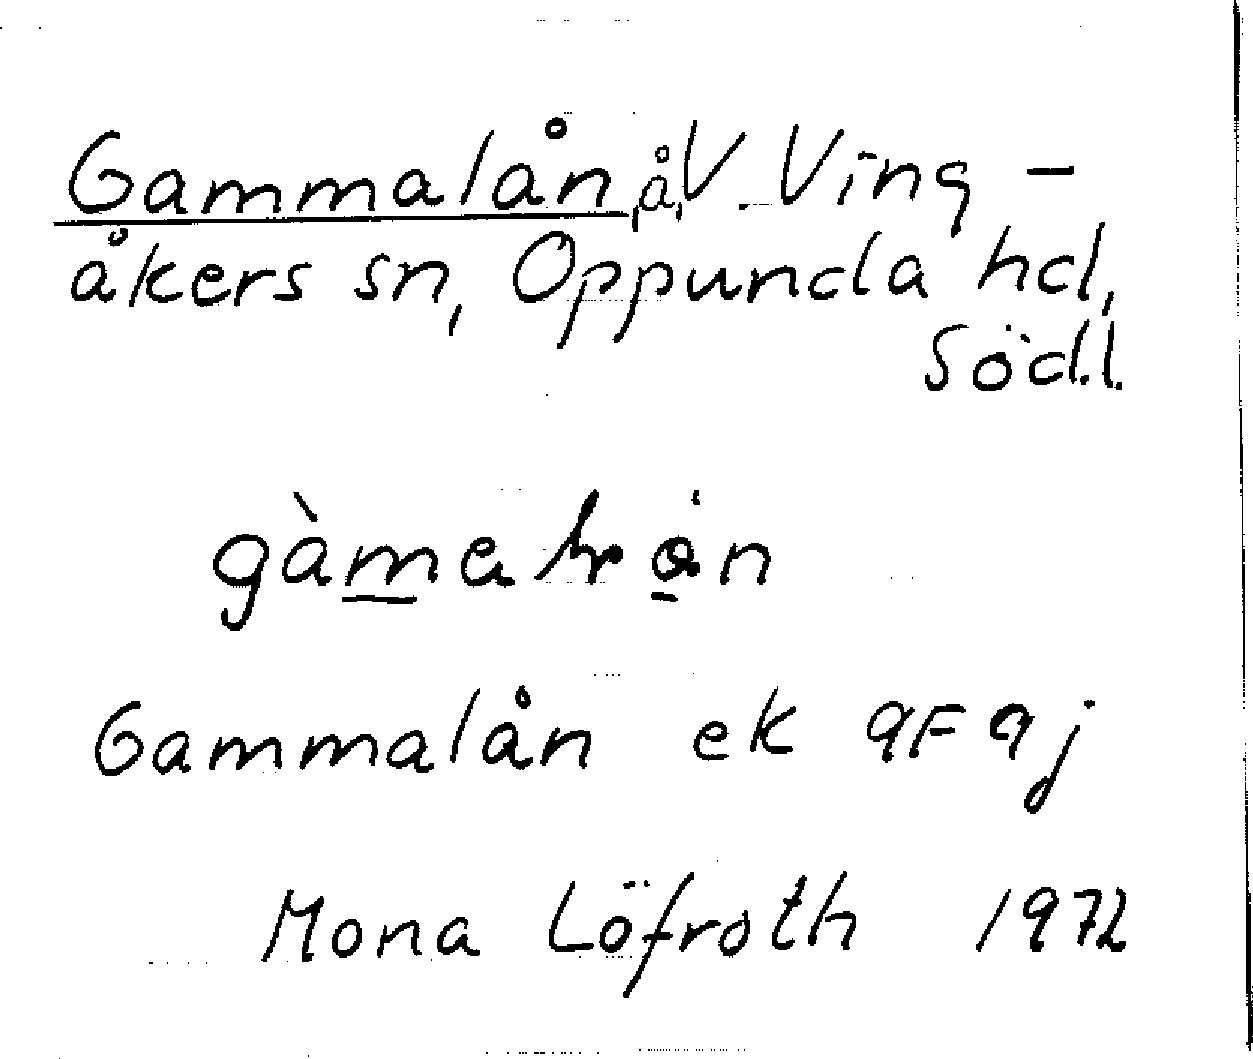 Gammalån, å, V. Ving-
åkers sn, Oppunda hd,
Södl.
Gammalån ek 9F 9j
Mona Löfroth 1972